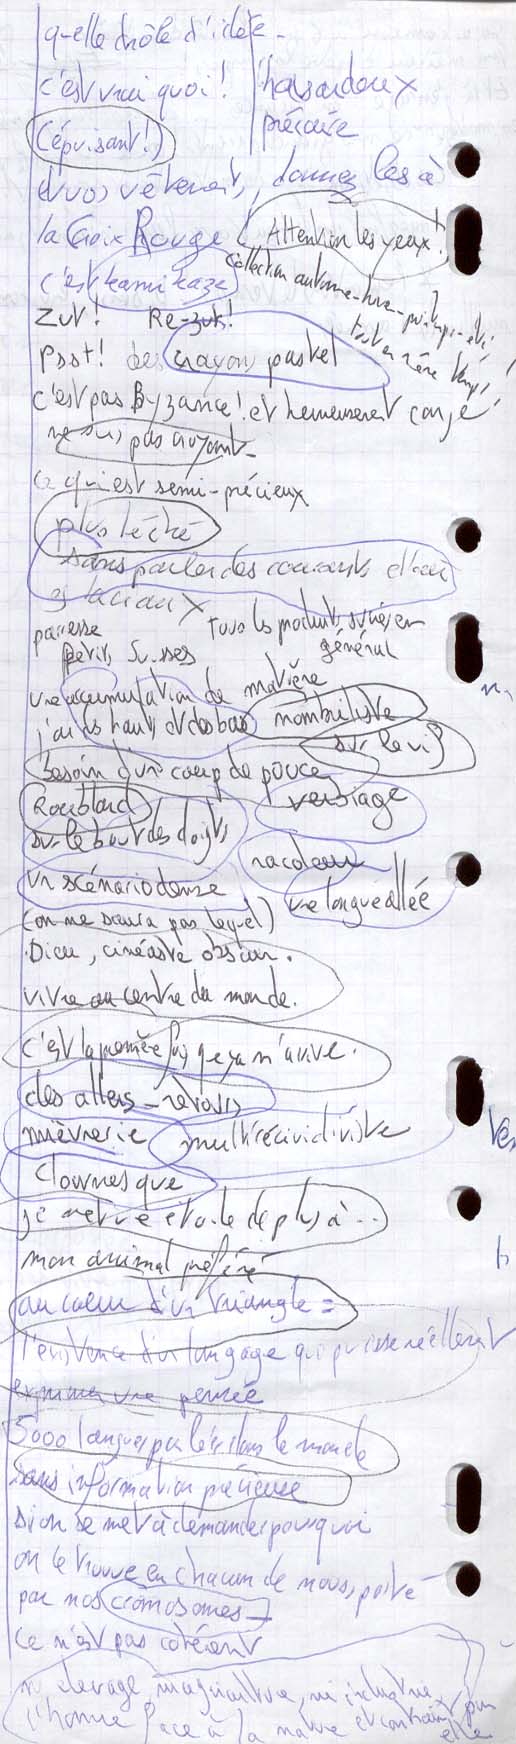 quelle drôle d'idée -
c'est vrai quoi! hasardeux
précaire
(épuisant!)
et vos vêtements, donnez les à
la Croix Rouge Attention les yeux!
c'est kamikaze collection automne-hiver-printemps-été
tout en même temps!
zut! Re-zut!
psst! des crayons pastel
c'est pas Byzance! et heureusement
ne suis pas croyant -
ce qui est semi-précieux
plus léché
sans parler des courants d'eau
glaciaux
paresse tous les produits suisses en
petits suisses général
une accumulation de matière
j'ai des hauts et des bas nombriliste
sur le vif
besoin d'un coup de pouce
Roublard verbiage
sur le bout des doigts
racoleur
un scénario dense une longue allée
(on ne saura pas lequel)
Dieu, cinéaste obscur.
vivre au centre du monde.
c'est la première fois que ça m'arrive.
des allers-retours
mièvrerie multirécidiviste
clownesque
je mettrai étoile de plus à ...
mon animal préféré
au coeur d'un triangle =
l'existence d'un langage qui puisse réellement
exprimer une pensée
5000 langues parlées dans le monde
sans information précieuse
si on se met à demander pourquoi
on le trouve en chacun de nous, porté
par nos cromosomes -
ce n'est pas cohérent
ni élevage, ni agriculture, ni industrie
l'homme face à la nature et contraint par
elle.